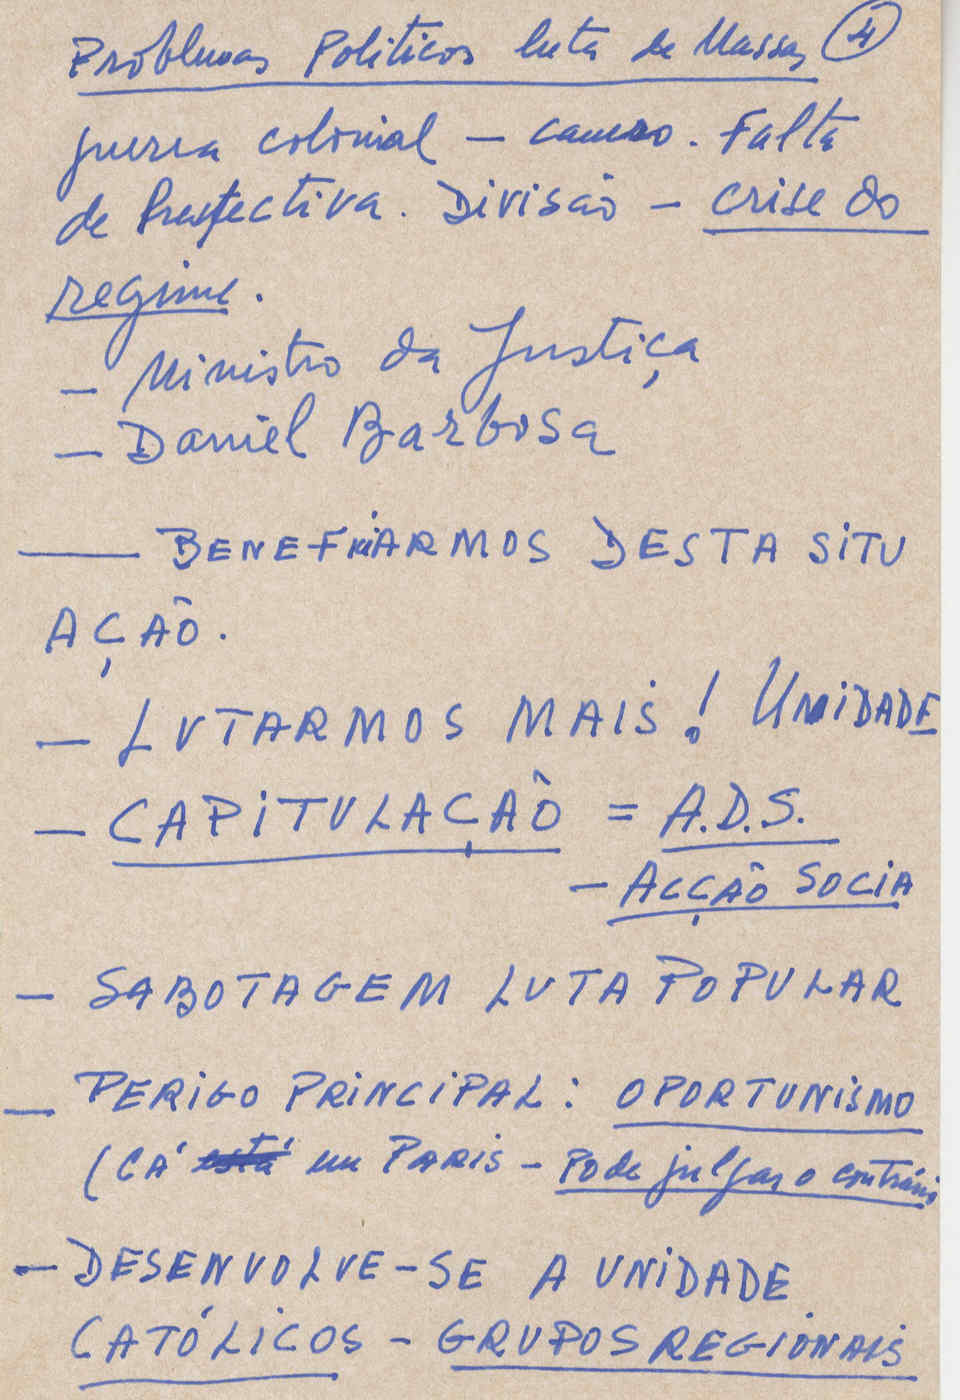 Problemas Politicos luta de Massas 4
guerra colonial – cancro. Falta
de Prespectiva. Divisão – crise do
regime.
– Ministro da Justiça
– Daniel Barbosa
— BENEFICIARMOS DESTA SITU
AÇÃO.
– LUTARMOS MAIS! UNIDADE
– CAPITULAÇÃO = A.D.S.
– ACÇÃO SOCIA
– SABOTAGEM LUTA POPULAR
– PERIGO PRINCIPAL: OPORTUNISMO
(CÁ está em PARIS – Pode julgar o contrário
– DESENVOLVE-SE A UNIDADE
CATÓLICOS – GRUPOS REGIONAIS